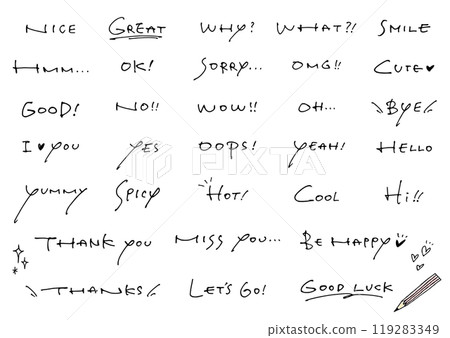 NICE GREAT WHY? WHAT?! SMILE
HMM... OK! SORRY... OMG!! CUTE♥
GOOD! NO!! WOW!! OH... \\BYE//
I ♥ YOU YES OOPS! YEAH! HELLO
YUMMY SPICY HOT! COOL HI!!
THANK YOU MISS YOU... BE HAPPY♥
\\THANKS// LET'S GO! GOOD LUCK
PIXTA
pixta.jp - 119283349